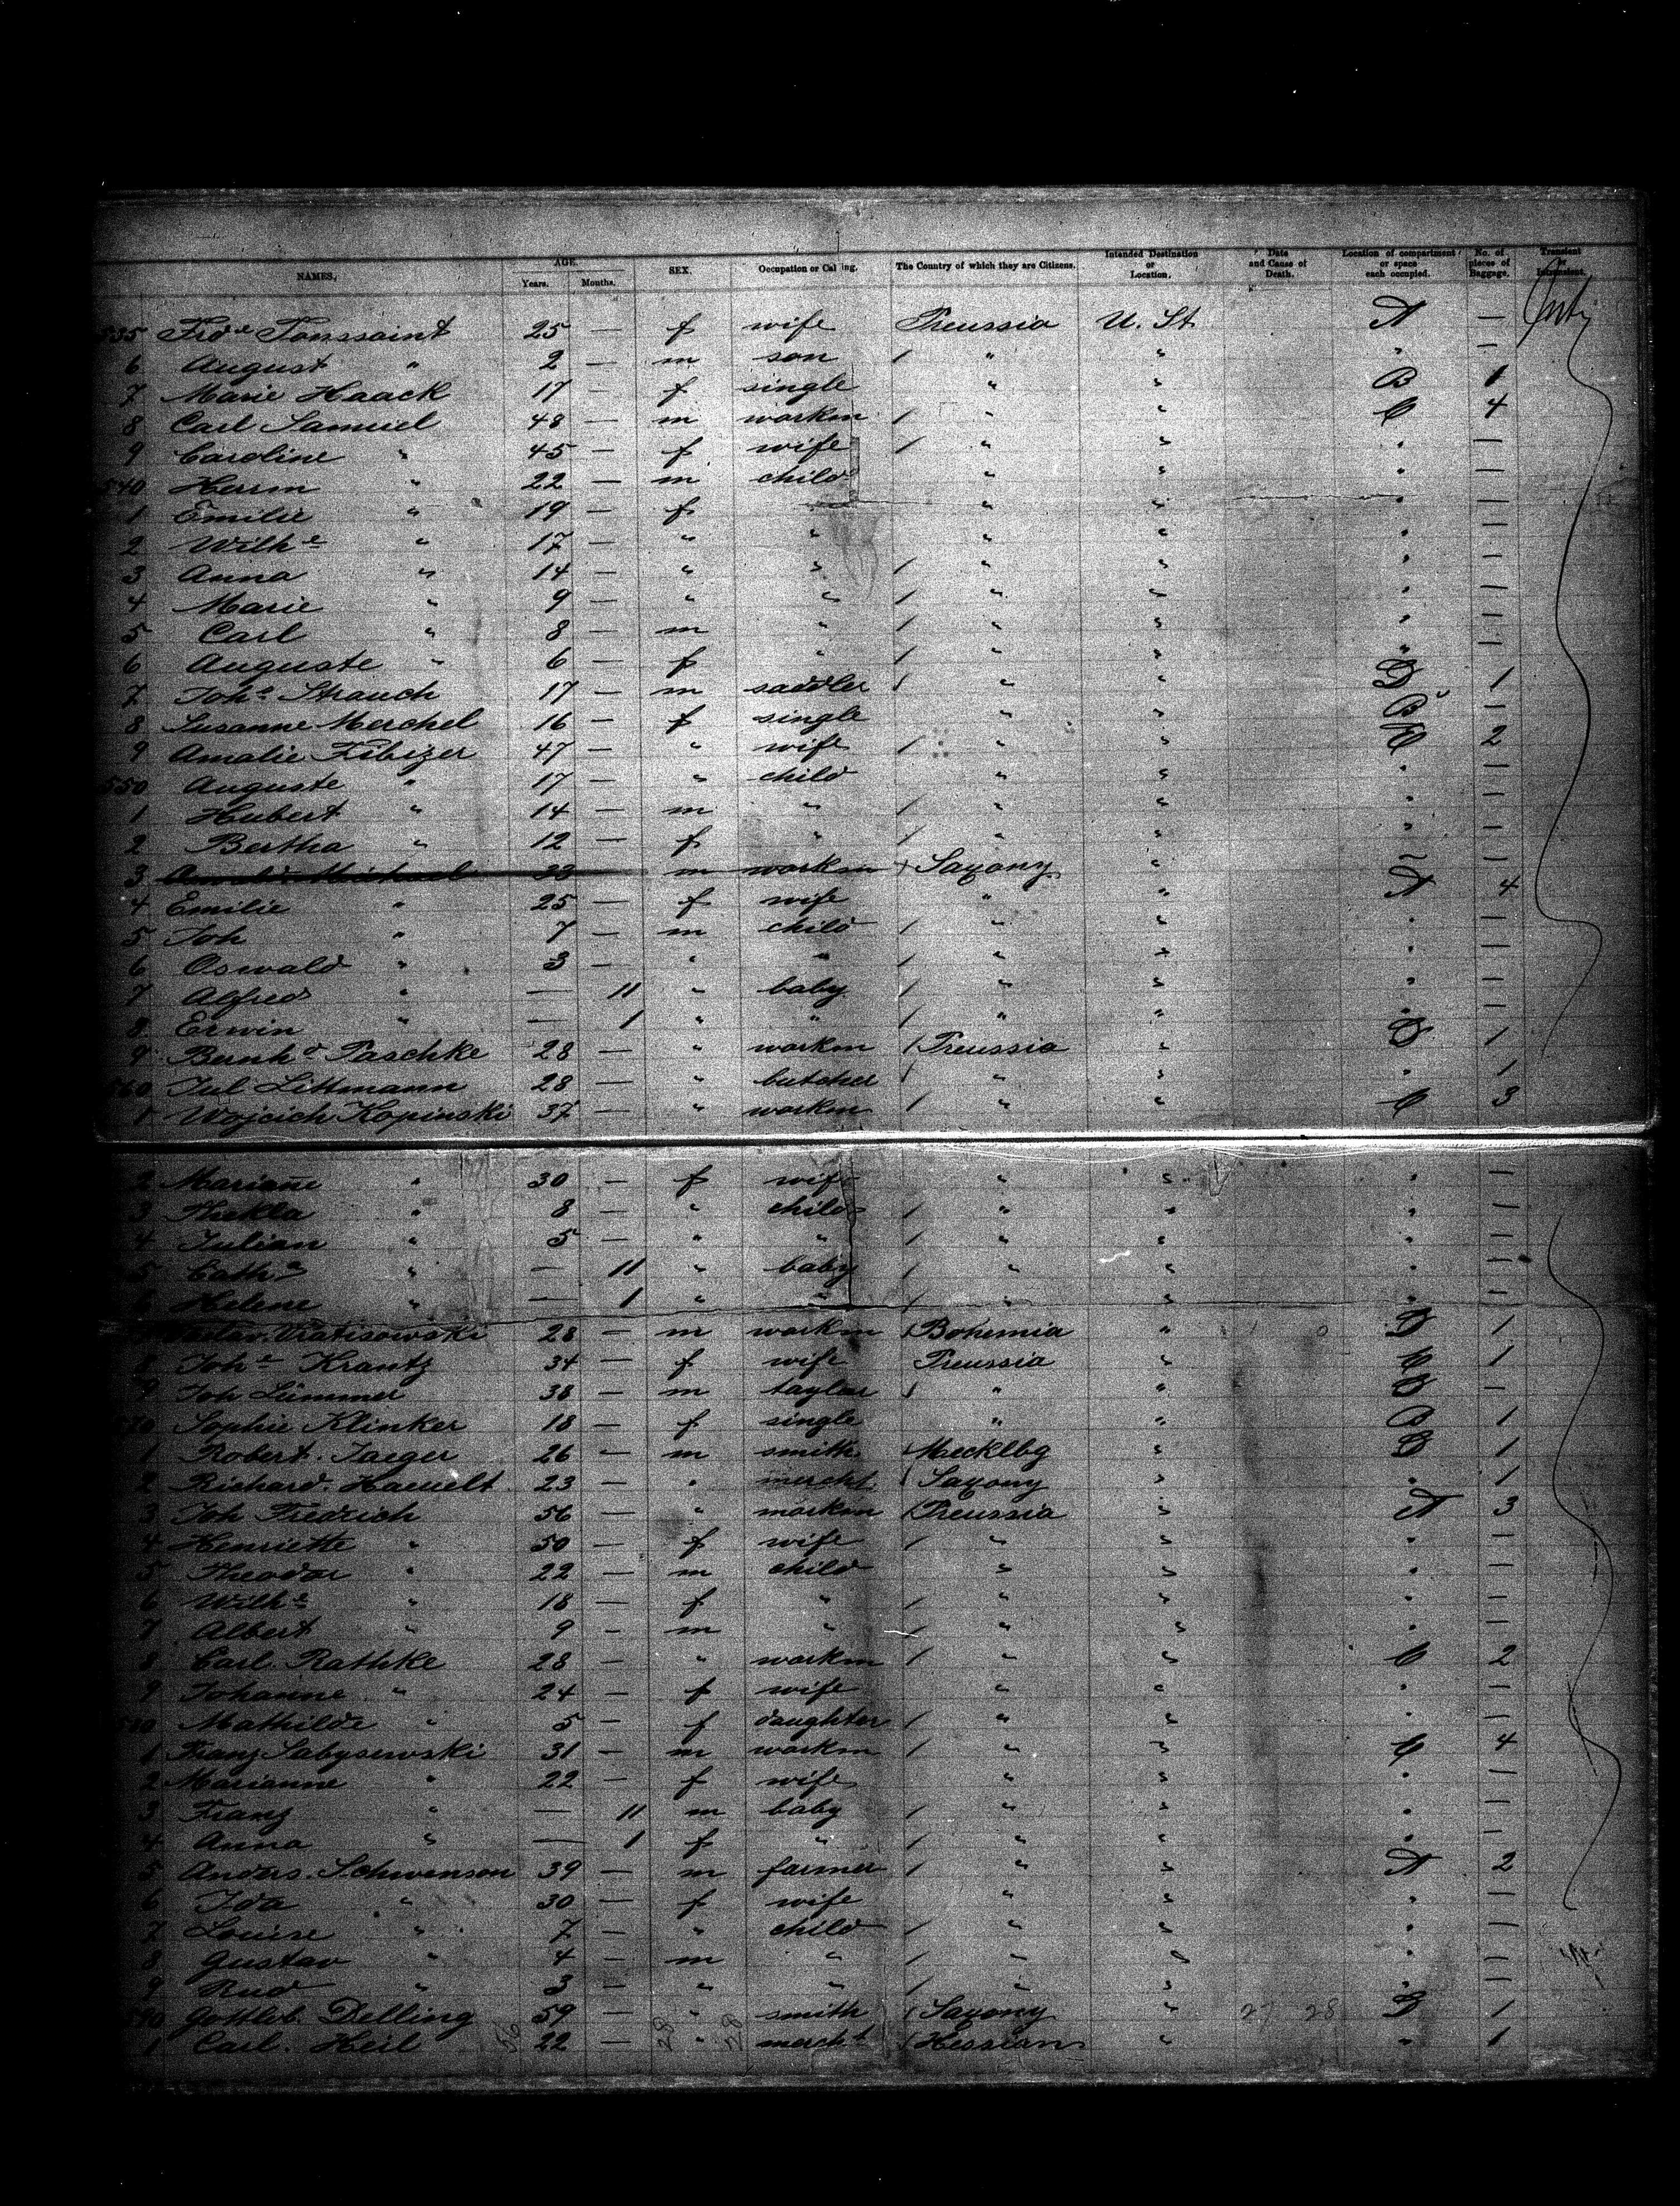 NAMES. AGE. Years. Months. SEX. Occupation or Calling. The Country of which they are Citizens. Intended Destination or Location. Date and Cause of Death. Location of compartment or space each occupied. No. of pieces of Baggage. Transient or
535 Frdᵉ Toussaint 25 — f wife Preussia U. St A —
6 August " 2 — m son / " " " —
7 Marie Haack 17 — f single " " B 1
8 Carl Samuel 48 — m workm / " " C 4
9 Caroline " 45 — f wife / " " " —
540 Herrm " 22 — m child " " " —
1 Emilie " 19 — f " " " " —
2 Wilhᵉ " 17 — " " " " " —
3 Anna " 14 — " " / " " " —
4 Marie " 9 — " " / " " " —
5 Carl " 8 — m " / " " " —
6 Auguste " 6 — f " / " " " —
7 Johᵉ Strauch 17 — m saddler / " " D 1
8 Susanne Merchel 16 — f single " " B —
9 Amalie Zibizer 47 — " wife / " " C 2
550 Auguste " 17 — " child " " " —
1 Hubert " 14 — m " / " " " —
2 Bertha " 12 — f " / " " " —
3 33 m workm Saxony " —
4 Emilie " 25 — f wife " " A 4
5 Joh " 7 — m child / " " " —
6 Oswald " 3 — " " / " " " —
7 Alfred " — 11 " baby / " " " —
8 Erwin " — 1 " " / " " " —
9 Bernhᵈ Paschke 28 — " workm / Preussia " D 1
560 Jul Littmann 28 — " butcher / " " " 1
1 Wojcich Kopinski 37 — " workm / " " C 3
2 Mariane " 30 — f wife " " " —
3 Thekla " 8 — " child / " " " —
4 Julian " 5 — " " / " " " —
5 Cathᵉ " — 11 " baby / " " " —
6 Helene " — 1 " " / " " " —
Vratisowski 28 — m workm / Bohemia " D 1
8 Johᵉ Krantz 34 — f wife Preussia " C 1
9 Joh Lümmer 38 — m taylor / " " D —
570 Sophie Klinker 18 — f single " " B 1
1 Robert. Jaeger 26 — m smith / Mecklbg " D 1
2 Richard. Hauelt 23 — " mercht / Saxony " " 1
3 Joh Fredrich 56 — " workm / Preussia " A 3
4 Henriette " 50 — f wife / " " " —
5 Theodor " 22 — m child " " " —
6 Wilhᵉ " 18 — f " / " " " —
7 Albert " 9 — m " / " " " —
8 Carl. Rathke 28 — " workm / " " C 2
9 Johanne " 24 — f wife " " " —
580 Mathilde " 5 — f daughter / " " " —
1 Franz Sabysewski 31 — m workm / " " C 4
2 Marianne " 22 — f wife " " " —
3 Franz " — 11 m baby / " " " —
4 Anna " — 1 f " / " " " —
5 Anders. Schwenson 39 — m farmer / " " A 2
6 Ida " 30 — f wife " " " —
7 Louise " 7 — " child / " " " —
8 Gustav " 4 — m " / " " " —
9 Rud " 3 — " " / " " " —
590 Gottlieb. Delling 59 — " smith / Saxony " 27 28 D 1
1 Carl. Heil 22 — " mercht / Hessian " " 1
56 28 28